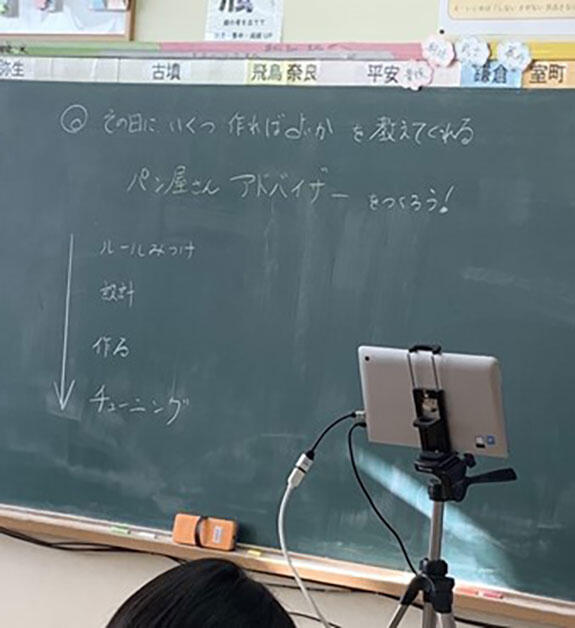 弥生 古墳 飛鳥 奈良 平安 鎌倉 室町
その日に いくつ 作ればよいか を教えてくれる
パン屋さん アドバイザー をつくろう!
ルールみつけ
設計
作る
チューニング